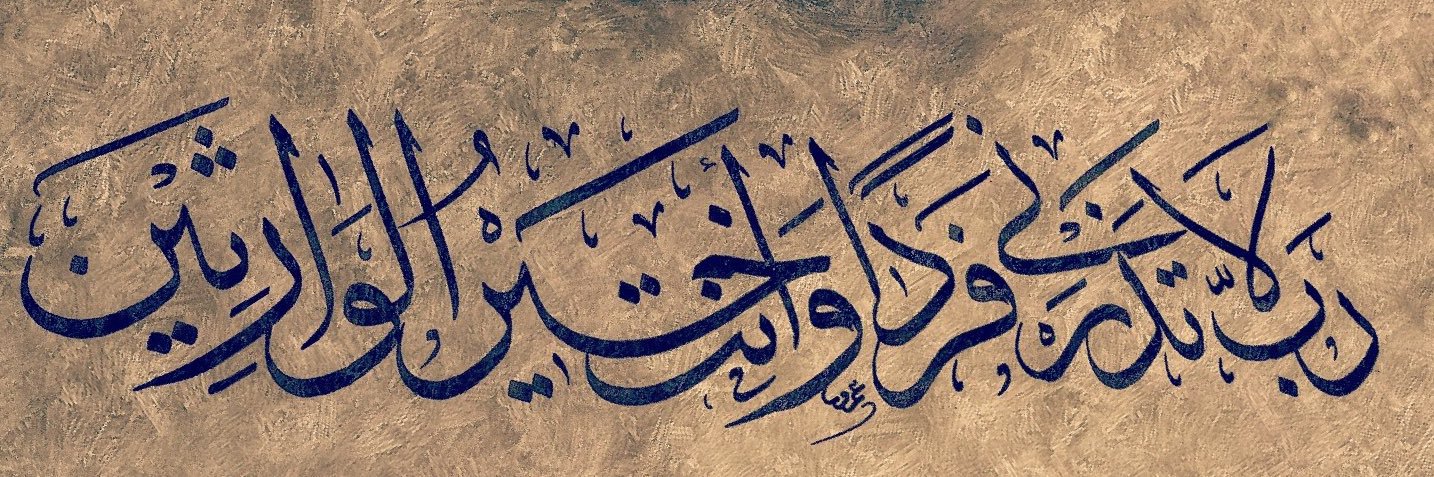 رَبِّ لَا تَذَرْنِي فَرْدًا وَأَنْتَ خَيْرُ الْوَارِثِينَ